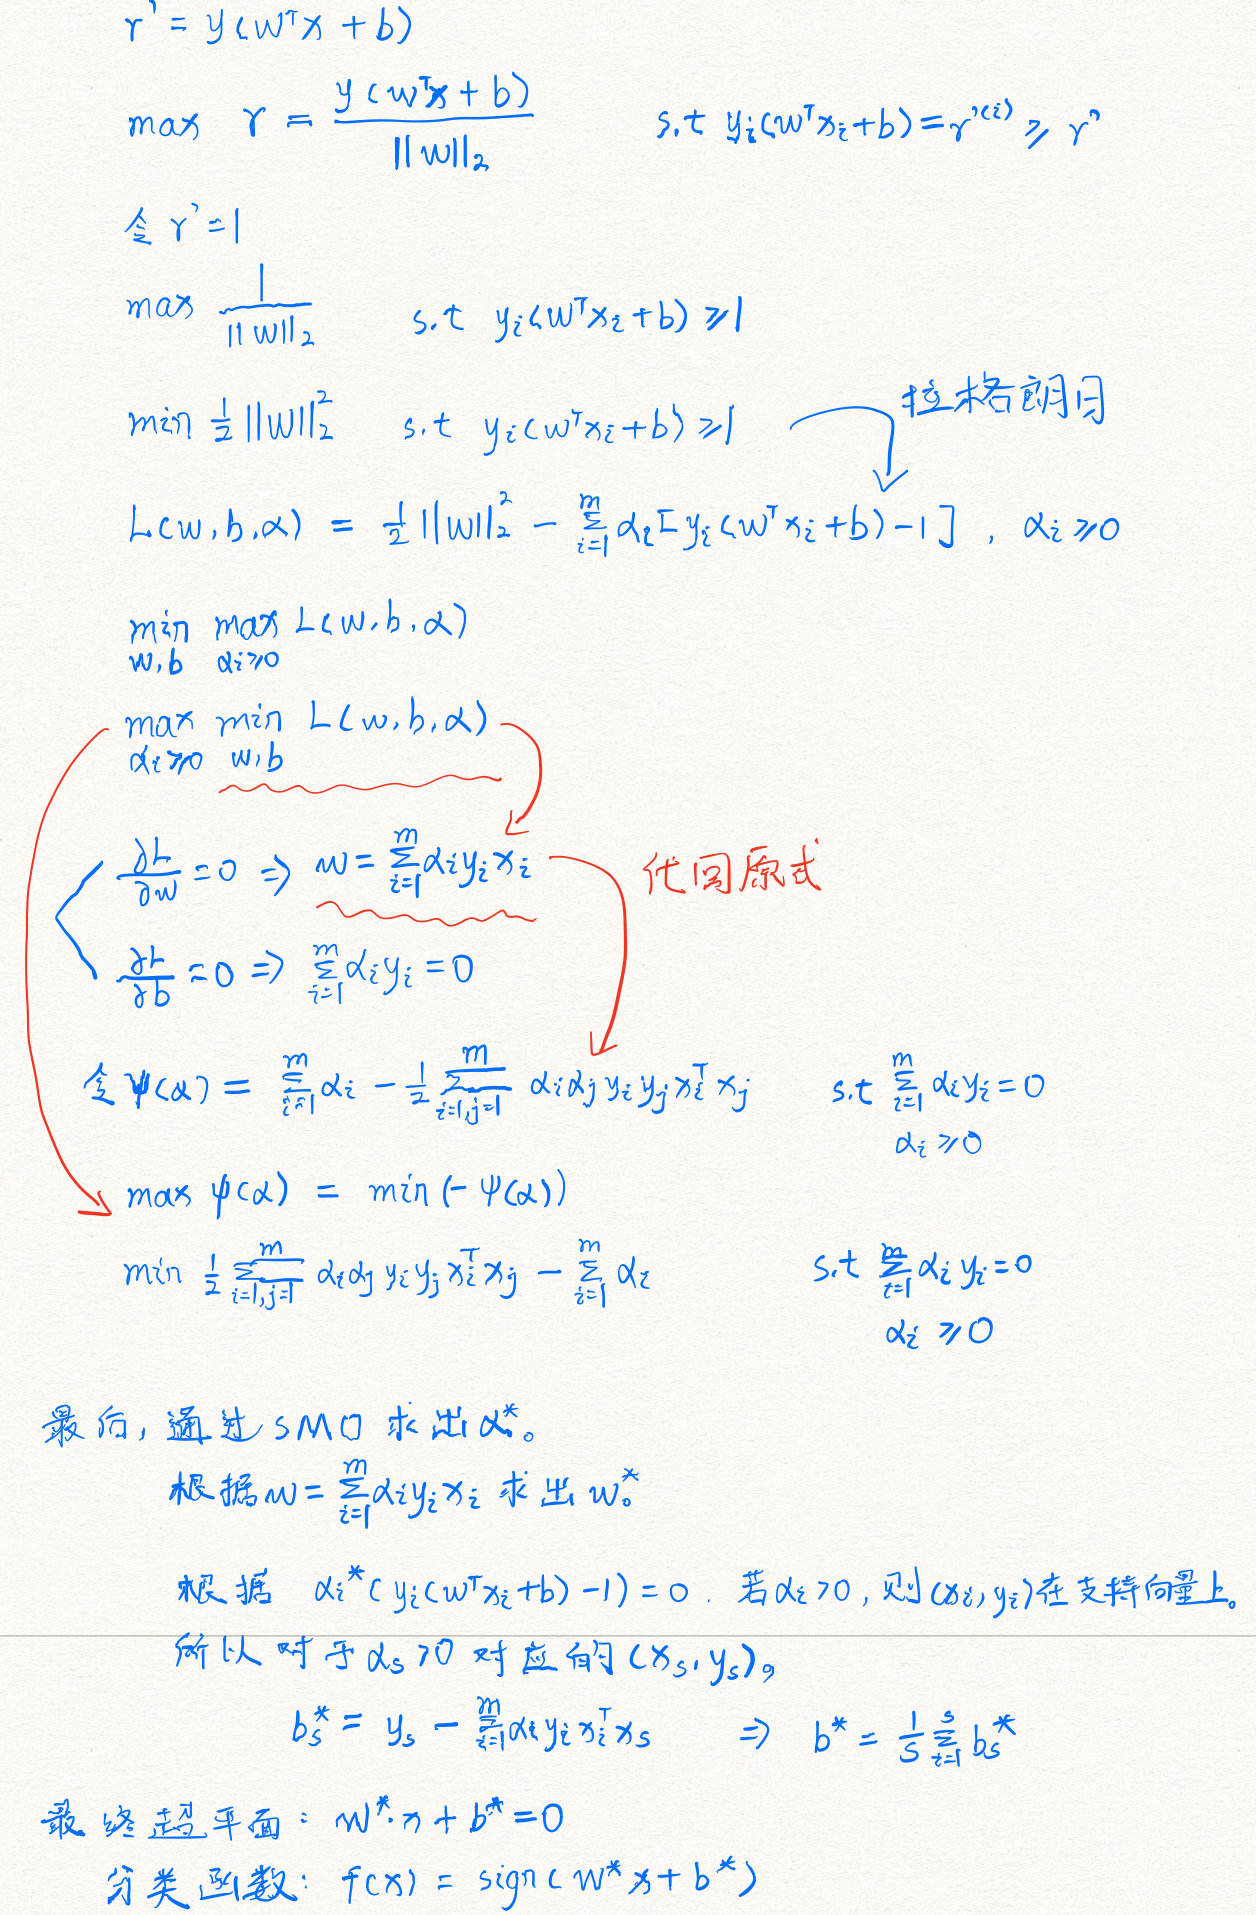 γ' = y(wᵀx + b)
max γ = y(wᵀx + b) / ||w||₂ s.t yᵢ(wᵀxᵢ+b) = γ'⁽ⁱ⁾ ≥ γ'
令 γ' = 1
max 1 / ||w||₂ s.t yᵢ(wᵀxᵢ + b) ≥ 1
min ½ ||w||₂² s.t yᵢ(wᵀxᵢ + b) ≥ 1 拉格朗日
L(w, b, α) = ½ ||w||₂² − Σᵢ₌₁ᵐ αᵢ[yᵢ(wᵀxᵢ + b) − 1], αᵢ ≥ 0
min max L(w, b, α)
w,b αᵢ≥0
max min L(w, b, α)
αᵢ≥0 w,b
∂L/∂w = 0 ⇒ w = Σᵢ₌₁ᵐ αᵢyᵢxᵢ 代回原式
∂L/∂b = 0 ⇒ Σᵢ₌₁ᵐ αᵢyᵢ = 0
令 ψ(α) = Σᵢ₌₁ᵐ αᵢ − ½ Σᵢ₌₁,ⱼ₌₁ᵐ αᵢαⱼyᵢyⱼxᵢᵀxⱼ s.t Σᵢ₌₁ᵐ αᵢyᵢ = 0
αᵢ ≥ 0
max ψ(α) = min(−ψ(α))
min ½ Σᵢ₌₁,ⱼ₌₁ᵐ αᵢαⱼyᵢyⱼxᵢᵀxⱼ − Σᵢ₌₁ᵐ αᵢ s.t Σᵢ₌₁ᵐ αᵢyᵢ = 0
αᵢ ≥ 0
最后，通过SMO求出α*。
根据w = Σᵢ₌₁ᵐ αᵢyᵢxᵢ 求出w*。
根据 αᵢ*(yᵢ(wᵀxᵢ+b) − 1) = 0. 若αᵢ>0, 则(xᵢ, yᵢ)在支持向量上。
所以对于αₛ>0对应的(xₛ, yₛ)。
bₛ* = yₛ − Σᵢ₌₁ᵐ αᵢyᵢxᵢᵀxₛ ⇒ b* = 1/S Σᵢ₌₁ˢ bₛ*
最终超平面: w*·x + b* = 0
分类函数: f(x) = sign(w*x + b*)